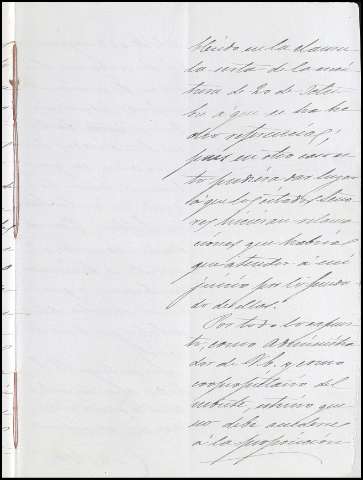 blecido en la clausu-
la sexta de la escri-
tura de 20 de Octu-
bre á que se ha he-
cho referencia;
pues en otro caso es-
to pudiera dar lugar
á que los citados Seño-
res hicieran reclama-
ciones que habria
que atender á mi
juicio por lo funda-
do de ellas.
Por todo lo expues-
to, como Administra-
dor de V.E. y como
copropietario del
monte, estimo que
no debe accederse
á la proposicion